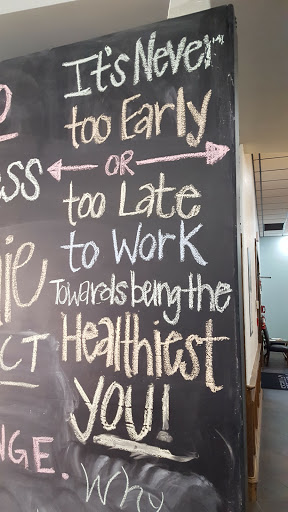 It's Never
too Early
OR
too Late
to Work
Towards being the
Healthiest
YOU!
Why
ESS
ie
CT
NGE.